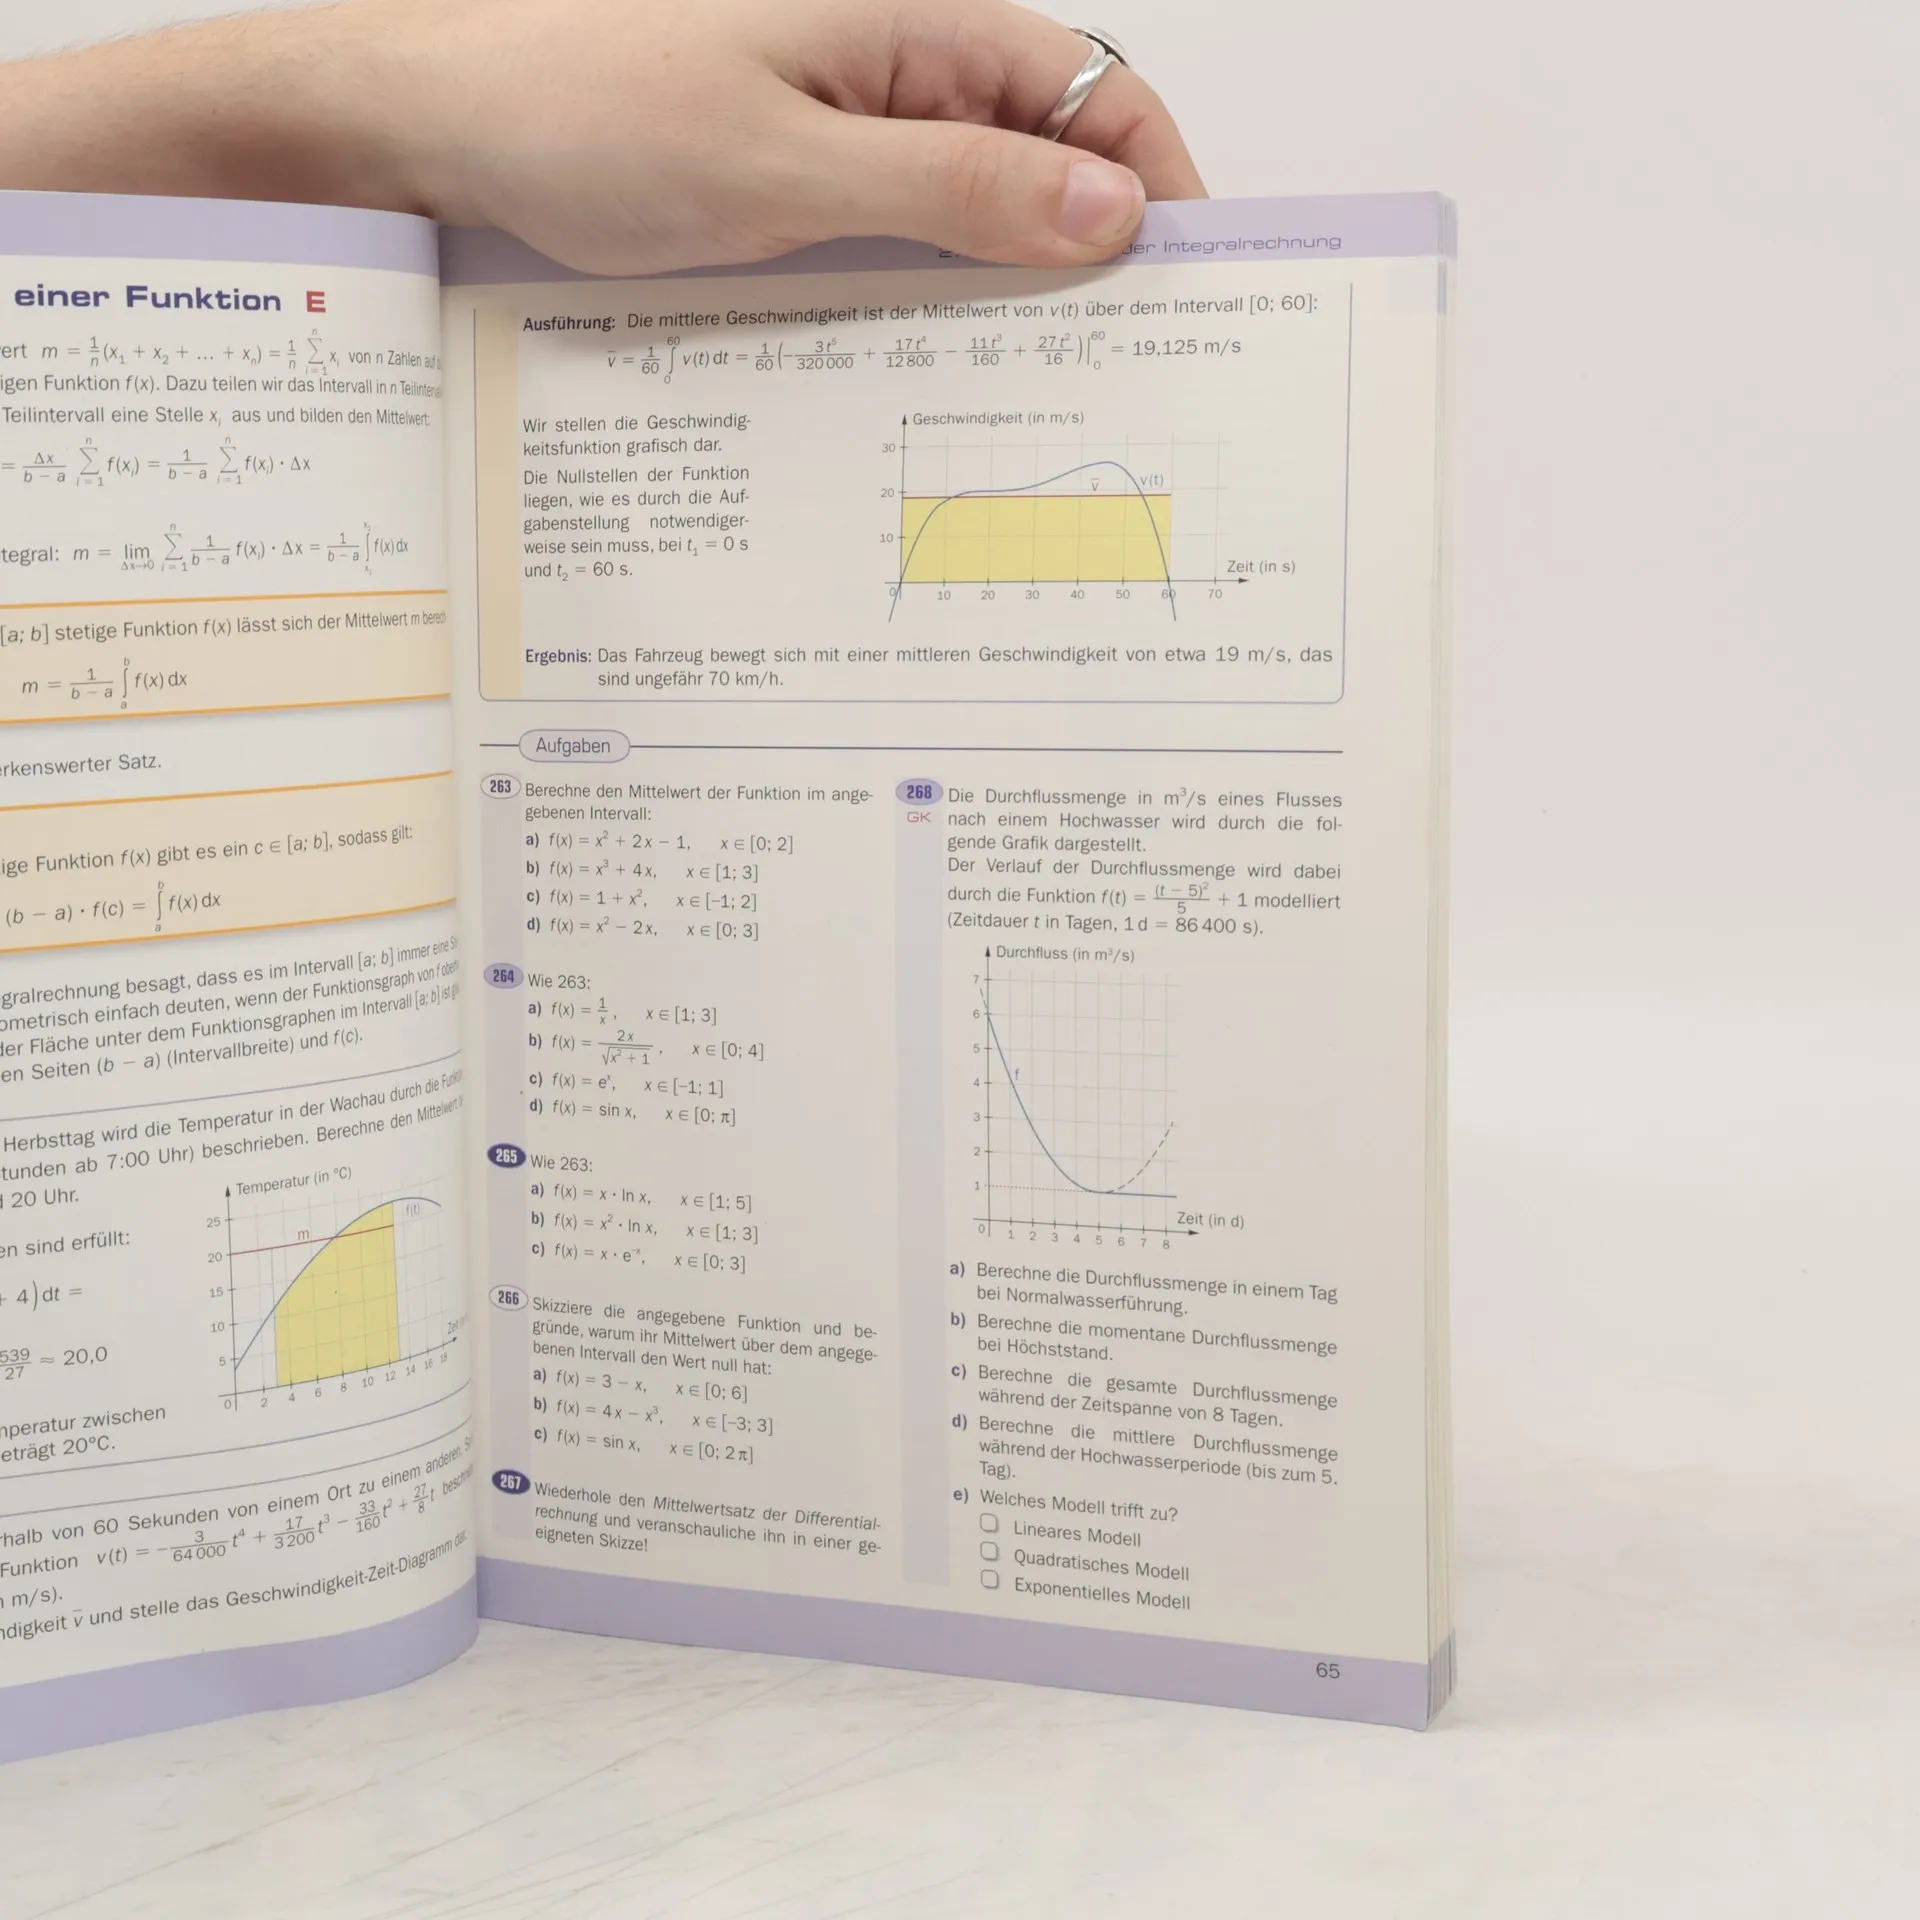 einer Funktion E
ert m = 1/n (x₁ + x₂ + ... + xₙ) = 1/n ∑ᵢ₌₁ⁿ xᵢ von n Zahlen auf
igen Funktion f(x). Dazu teilen wir das Intervall in n
Teilintervall eine Stelle xᵢ aus und bilden den Mittelwert:
= Δx/(b − a) ∑ᵢ₌₁ⁿ f(xᵢ) = 1/(b − a) ∑ᵢ₌₁ⁿ f(xᵢ) · Δx
tegral: m = lim Δx→0 ∑ᵢ₌₁ⁿ 1/(b − a) f(xᵢ) · Δx = 1/(b − a) ∫ f(x) dx
[a; b] stetige Funktion f(x) lässt sich der Mittelwert m
m = 1/(b − a) ∫ₐᵇ f(x) dx
erkenswerter Satz.
ige Funktion f(x) gibt es ein c ∈ [a; b], sodass gilt:
(b − a) · f(c) = ∫ₐᵇ f(x) dx
gralrechnung besagt, dass es im Intervall [a; b] immer eine
ometrisch einfach deuten, wenn der Funktionsgraph von f
der Fläche unter dem Funktionsgraphen im Intervall [a; b] ist
en Seiten (b − a) (Intervallbreite) und f(c).
Herbsttag wird die Temperatur in der Wachau durch die
tunden ab 7:00 Uhr) beschrieben. Berechne den Mittelwert
20 Uhr.
Temperatur (in °C)
25
20
15
10
5
m
f(t)
0 2 4 6 8 10 12 14 16 18
en sind erfüllt:
+ 4) dt =
539/27 ≈ 20,0
mperatur zwischen
eträgt 20°C.
rhalb von 60 Sekunden von einem Ort zu einem anderen.
Funktion v(t) = −3/64 000 t⁴ + 17/3 200 t³ − 33/160 t² + 27/8 t
m/s).
ndigkeit v̄ und stelle das Geschwindigkeit-Zeit-Diagramm dar.
der Integralrechnung
Ausführung: Die mittlere Geschwindigkeit ist der Mittelwert von v(t) über dem Intervall [0; 60]:
v̄ = 1/60 ∫₀⁶⁰ v(t) dt = 1/60 (−3t⁵/320 000 + 17t⁴/12 800 − 11t³/160 + 27t²/16)|₀⁶⁰ = 19,125 m/s
Wir stellen die Geschwindig-
keitsfunktion grafisch dar.
Die Nullstellen der Funktion
liegen, wie es durch die Auf-
gabenstellung notwendiger-
weise sein muss, bei t₁ = 0 s
und t₂ = 60 s.
Geschwindigkeit (in m/s)
30
20
10
v̄
v(t)
Zeit (in s)
0 10 20 30 40 50 60 70
Ergebnis: Das Fahrzeug bewegt sich mit einer mittleren Geschwindigkeit von etwa 19 m/s, das
sind ungefähr 70 km/h.
Aufgaben
263 Berechne den Mittelwert der Funktion im ange-
gebenen Intervall:
a) f(x) = x² + 2x − 1, x ∈ [0; 2]
b) f(x) = x³ + 4x, x ∈ [1; 3]
c) f(x) = 1 + x², x ∈ [−1; 2]
d) f(x) = x² − 2x, x ∈ [0; 3]
264 Wie 263:
a) f(x) = 1/x, x ∈ [1; 3]
b) f(x) = 2x/√(x² + 1), x ∈ [0; 4]
c) f(x) = eˣ, x ∈ [−1; 1]
d) f(x) = sin x, x ∈ [0; π]
265 Wie 263:
a) f(x) = x · ln x, x ∈ [1; 5]
b) f(x) = x² · ln x, x ∈ [1; 3]
c) f(x) = x · e⁻ˣ, x ∈ [0; 3]
266 Skizziere die angegebene Funktion und be-
gründe, warum ihr Mittelwert über dem angege-
benen Intervall den Wert null hat:
a) f(x) = 3 − x, x ∈ [0; 6]
b) f(x) = 4x − x³, x ∈ [−3; 3]
c) f(x) = sin x, x ∈ [0; 2π]
267 Wiederhole den Mittelwertsatz der Differential-
rechnung und veranschauliche ihn in einer ge-
eigneten Skizze!
268 Die Durchflussmenge in m³/s eines Flusses
GK nach einem Hochwasser wird durch die fol-
gende Grafik dargestellt.
Der Verlauf der Durchflussmenge wird dabei
durch die Funktion f(t) = (t − 5)²/5 + 1 modelliert
(Zeitdauer t in Tagen, 1 d = 86 400 s).
Durchfluss (in m³/s)
7
6
5
4
3
2
1
f
Zeit (in d)
0 1 2 3 4 5 6 7 8
a) Berechne die Durchflussmenge in einem Tag
bei Normalwasserführung.
b) Berechne die momentane Durchflussmenge
bei Höchststand.
c) Berechne die gesamte Durchflussmenge
während der Zeitspanne von 8 Tagen.
d) Berechne die mittlere Durchflussmenge
während der Hochwasserperiode (bis zum 5.
Tag).
e) Welches Modell trifft zu?
Lineares Modell
Quadratisches Modell
Exponentielles Modell
65